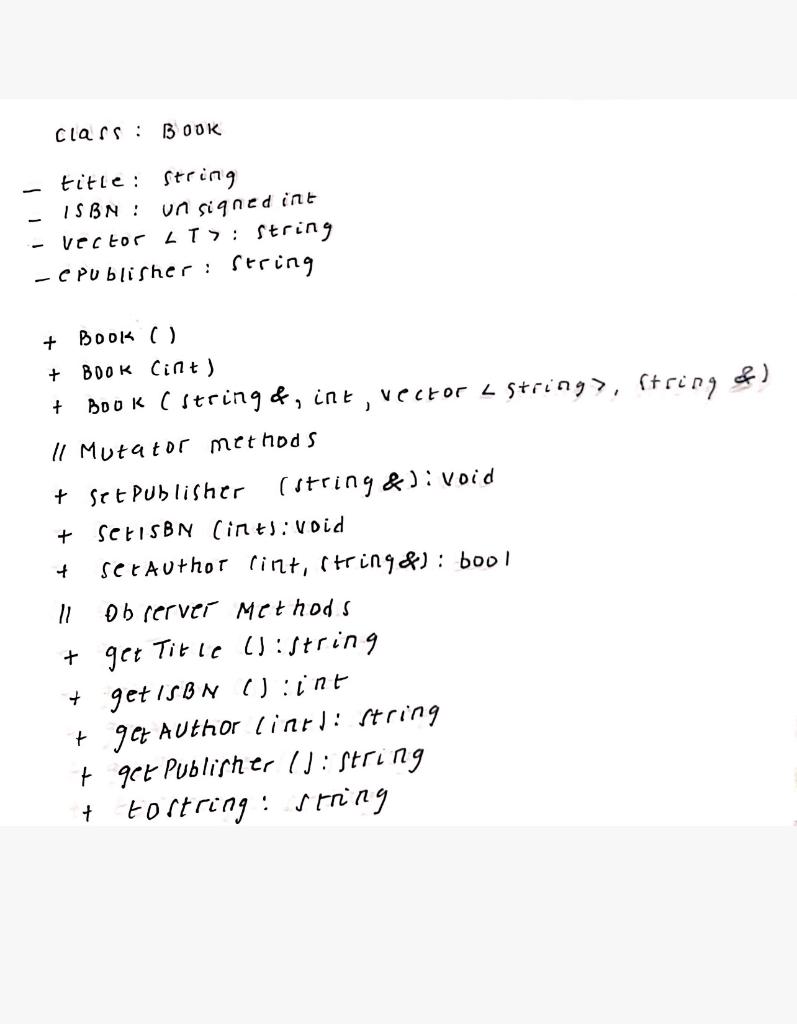 class: Book
- title: string
- ISBN: unsigned int
- vector <T>: string
- ePublisher: string
+ Book ()
+ Book (int)
+ Book (string &, int, vector < string>, string &)
// Mutator methods
+ setPublisher (string &): void
+ setISBN (int): void
+ setAuthor (int, string&): bool
// Observer Methods
+ get Title (): string
+ getISBN (): int
+ get Author (int): string
+ get Publisher (): string
+ tostring: string